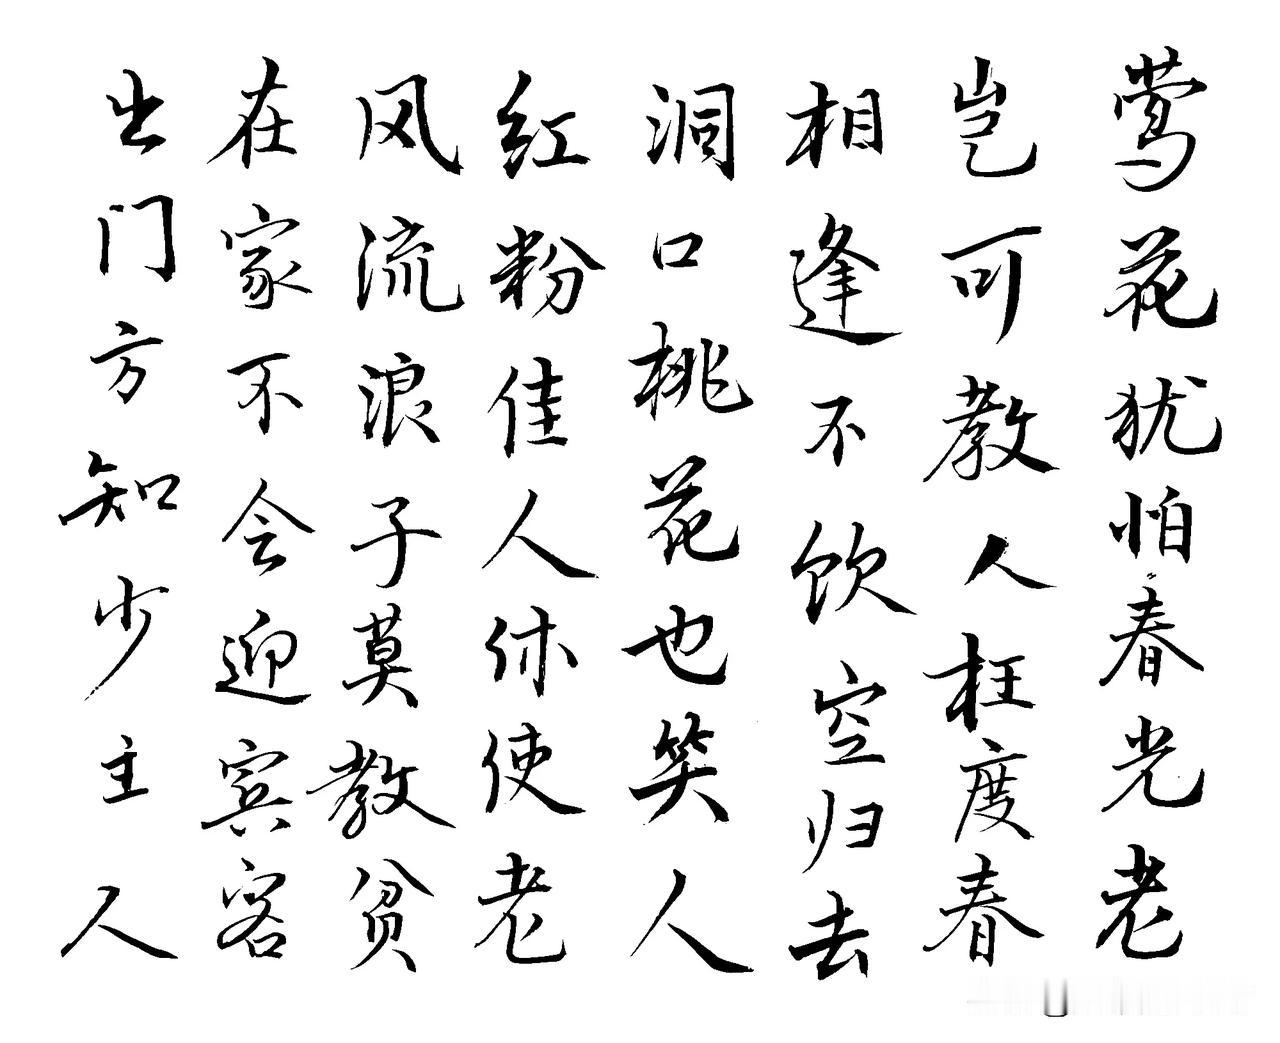 莺花犹怕春光老
岂可教人枉度春
相逢不饮空归去
洞口桃花也笑人
红粉佳人休使老
风流浪子莫教贫
在家不会迎宾客
出门方知少主人